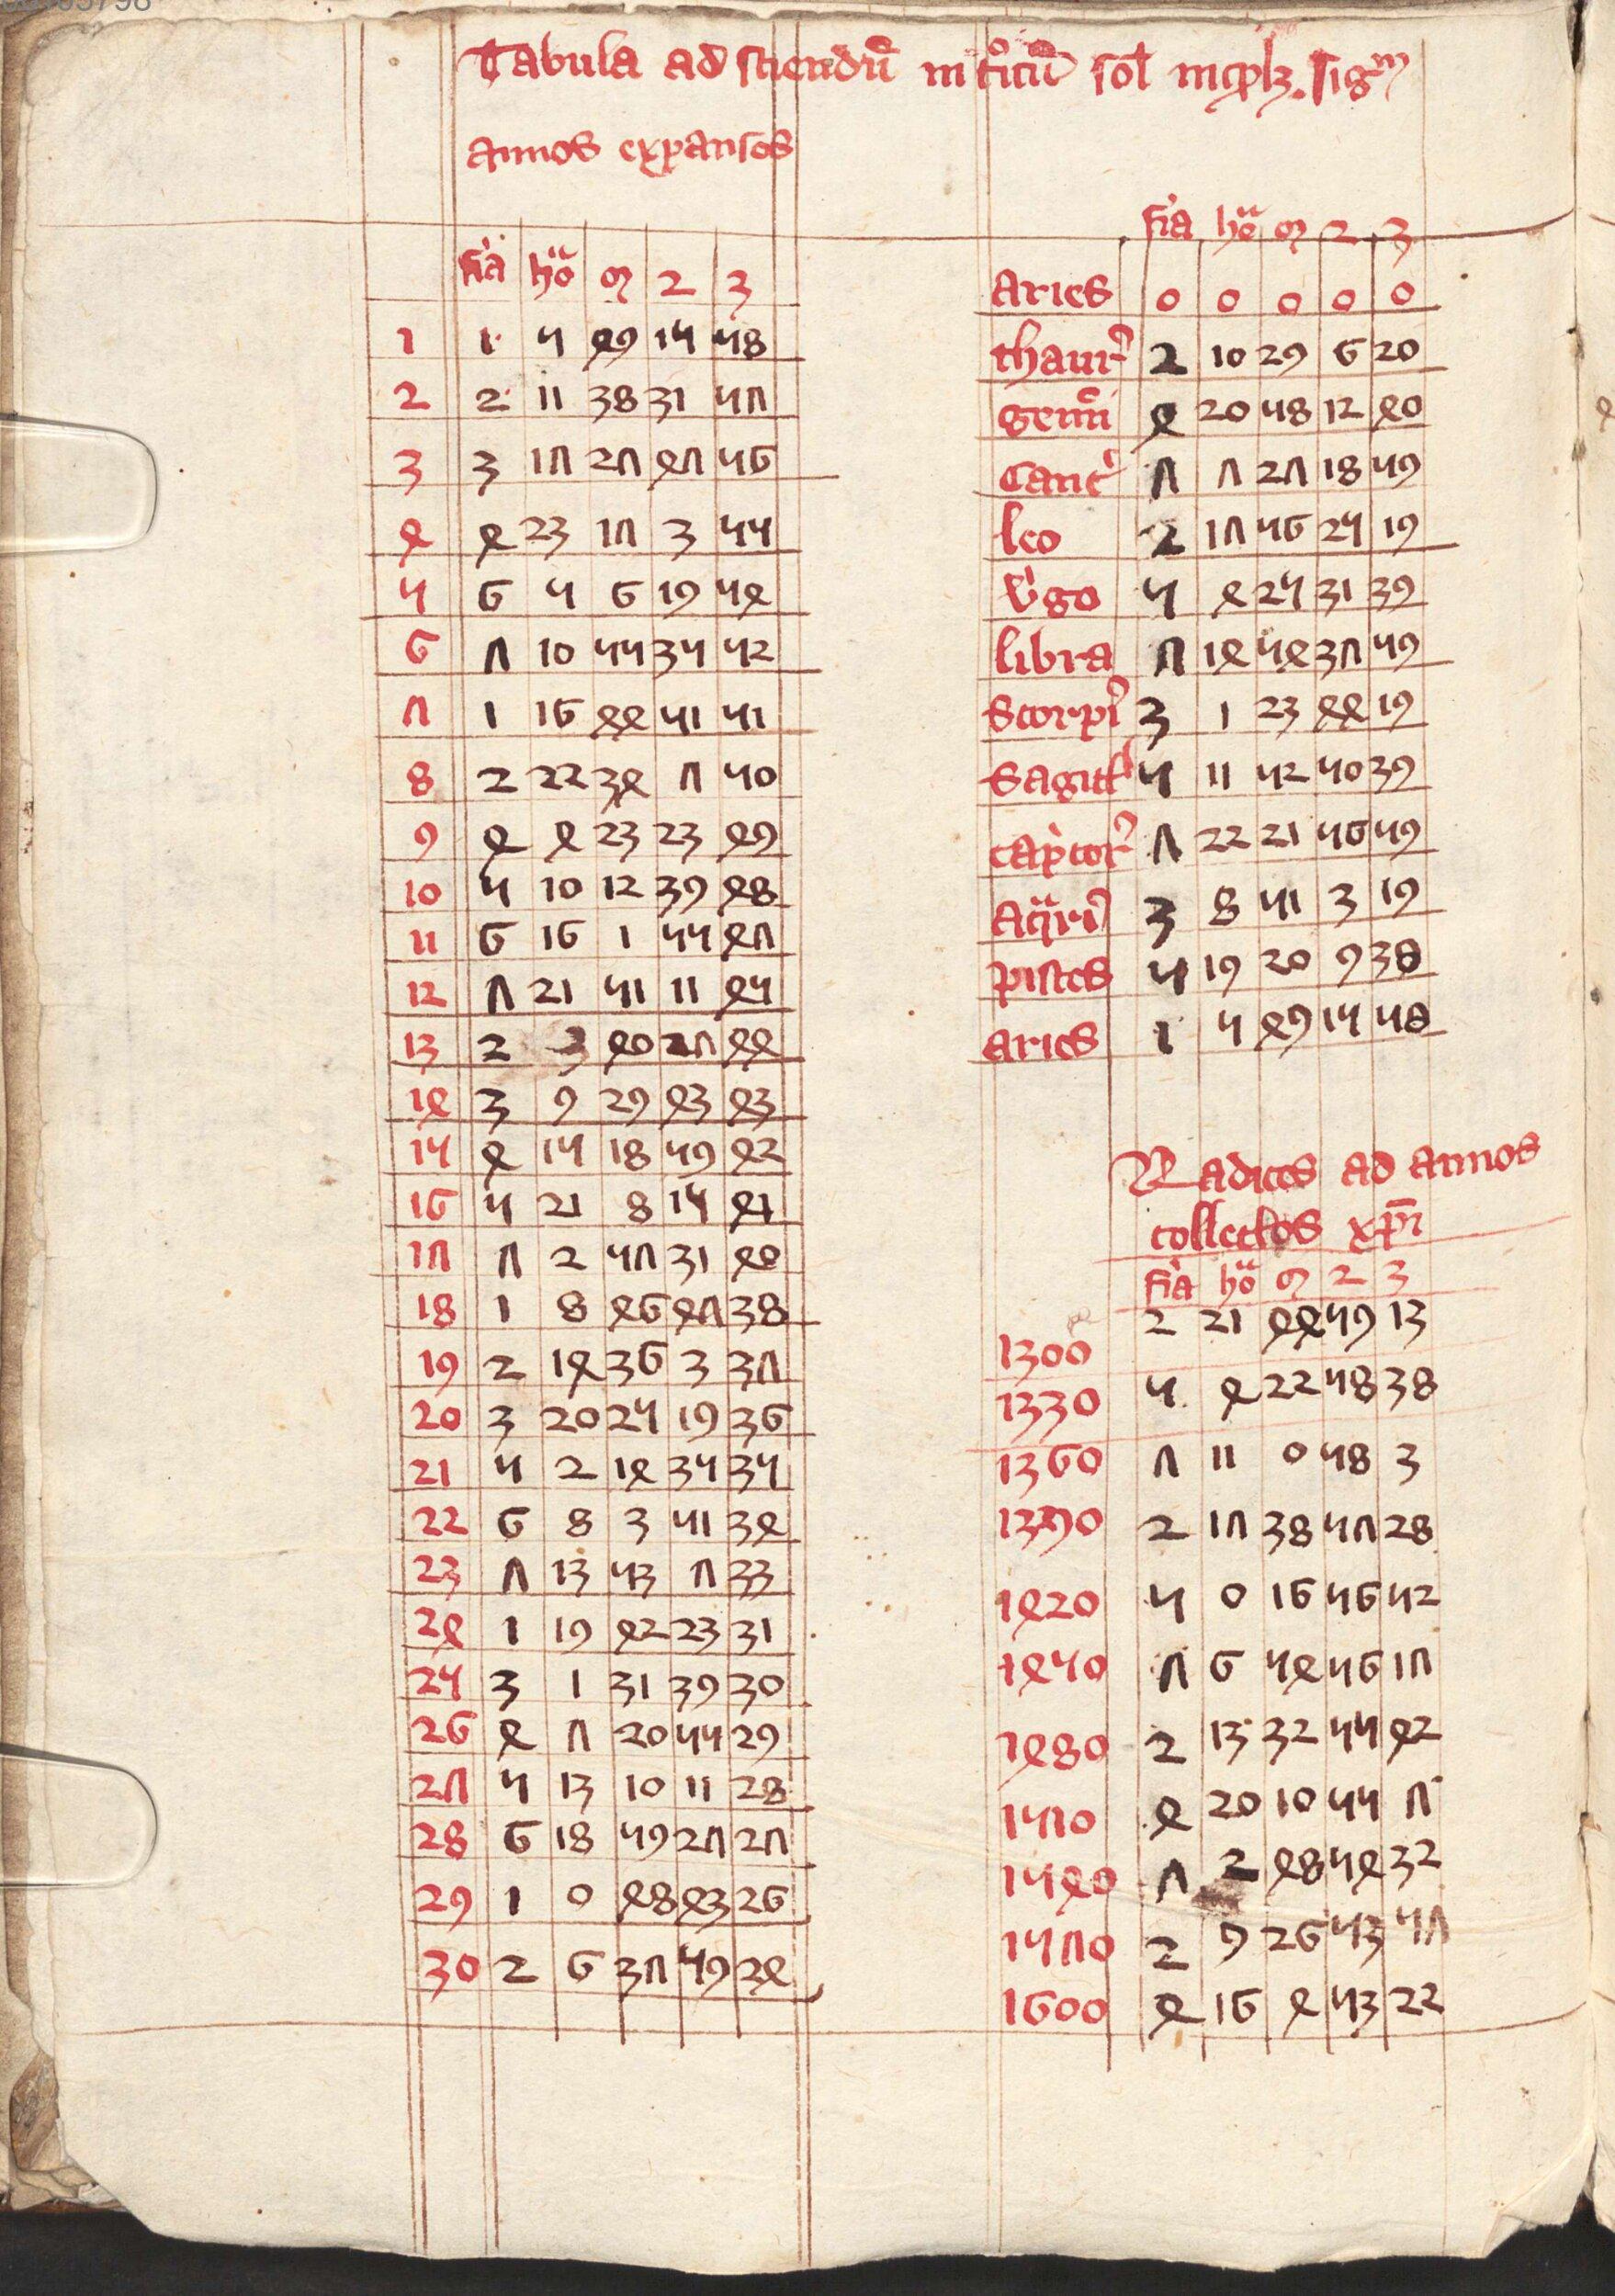 Tabula ad sciendũ introitũ sol in quolz. sigm
annos expansos
fia ho m 2 3
1 1 5 49 15 58
2 2 11 38 31 57
3 3 17 27 47 56
4 4 23 17 3 55
5 6 5 6 19 54
6 7 10 55 35 52
7 1 16 44 51 51
8 2 22 34 7 50
9 4 4 23 23 49
10 5 10 12 39 48
11 6 16 1 55 47
12 7 21 51 11 45
13 2 3 40 27 44
14 3 9 29 43 43
15 4 15 18 59 42
16 5 21 8 15 41
17 7 2 57 31 40
18 1 8 46 47 38
19 2 14 36 3 37
20 3 20 25 19 36
21 5 2 14 35 35
22 6 8 3 51 34
23 7 13 53 7 33
24 1 19 42 23 31
25 3 1 31 39 30
26 4 7 20 55 29
27 5 13 10 11 28
28 6 18 59 27 27
29 1 0 48 43 26
30 2 6 37 59 24
fia ho m 2 3
Aries 0 0 0 0 0
thaur9 2 10 29 6 20
geminí 4 20 48 12 40
Canc 7 7 27 18 59
leo 2 17 56 24 19
v'go 5 4 25 31 39
libra 7 14 54 37 59
Scorpi9 3 1 23 44 19
Sagitt 5 11 52 50 39
cap'cor9 7 22 21 56 59
Aq'ri9 3 8 51 3 19
pisces 5 19 20 9 38
aries 1 5 49 15 58
Radices ad annos
collectos xp̄i
fia ho m 2 3
1300 2 21 44 59 13
1330 5 4 22 58 38
1360 7 11 0 58 3
1390 2 17 38 57 28
1420 5 0 16 56 52
1450 7 6 54 56 17
1480 2 13 32 55 42
1510 4 20 10 55 7
1540 7 2 48 54 32
1570 2 9 26 53 57
1600 4 16 4 53 22